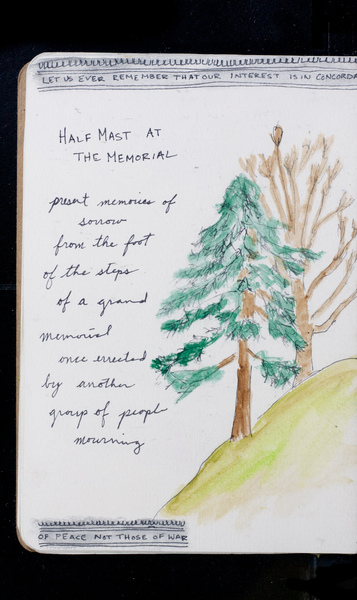 LET US EVER REMEMBER THAT OUR INTEREST IS IN CONCORD
HALF MAST AT
THE MEMORIAL
present memories of
sorrow
from the foot
of the steps
of a grand
memorial
once erected
by another
group of people
mourning
OF PEACE NOT THOSE OF WAR